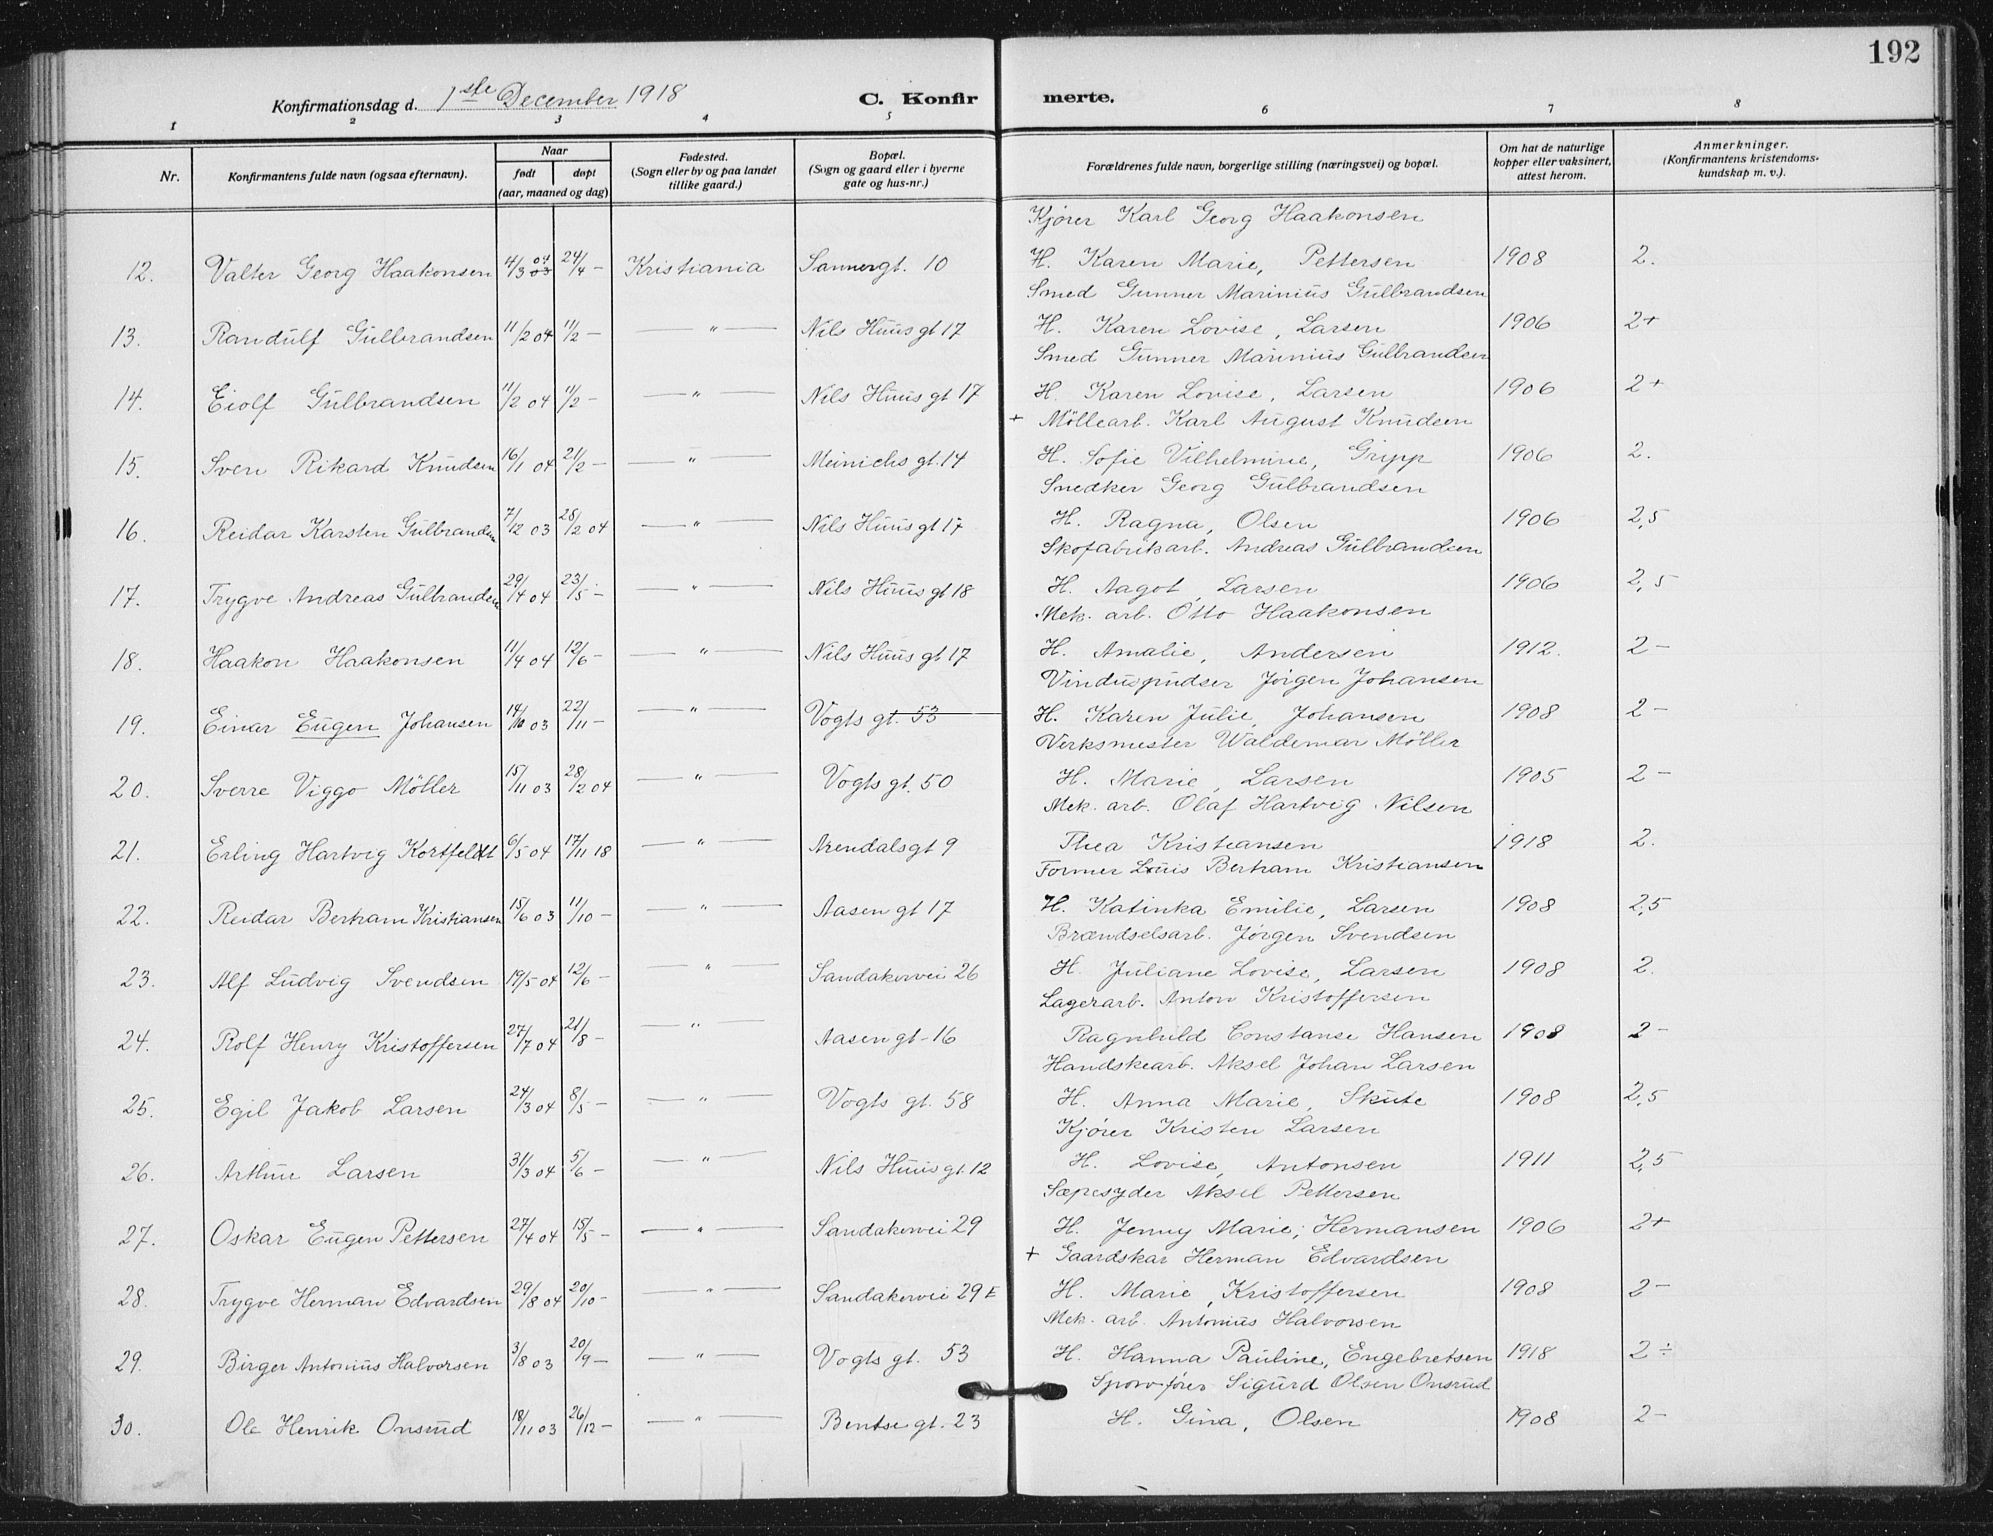 192
Konfirmationsdag d. 1ste December 1918 C. Konfirmerte.
1 2 3 4 5 6 7 8
Nr. Konfirmantens fulde navn (ogsaa efternavn). Naar født døpt (aar, maaned og dag) Fødested. (Sogn eller by og paa landet tillike gaard.) Bopæl. (Sogn og gaard eller i byerne gate og hus-nr.) Forældrenes fulde navn, borgerlige stilling (næringsvei) og bopæl. Om hat de naturlige kopper eller vaksinert, attest herom. Anmerkninger. (Konfirmantens kristendomskundskap m. v.).
Kjører Karl Georg Haakonsen
12. Valter Georg Haakonsen 4/3 04 03 24/4 — Kristiania Sannergt. 10 H. Karen Marie, Pettersen 1908 2.
Smed Gunner Marinius Gulbrandsen
13. Randulf Gulbrandsen 11/2 04 11/2 — — " — Nils Huus gt 17 H. Karen Lovise, Larsen 1906 2+
Smed Gunner Marinius Gulbrandsen
14. Eiolf Gulbrandsen 11/2 04 11/2 — — " — Nils Huus gt 17 H. Karen Lovise, Larsen 1906 2+
+ Möllearb. Karl August Knudsen
15. Sven Rikard Knudsen 16/1 04 21/2 — — " — Meinichs gt. 14 H. Sofie Vilhelmine, Gripp 1906 2.
Snedker Georg Gulbrandsen
16. Reidar Karsten Gulbrandsen 7/12 03 28/2 04 — " — Nils Huus gt 17 H. Ragna, Olsen 1906 2,5
Skofabrikarb. Andreas Gulbrandsen
17. Trygve Andreas Gulbrandsen 29/4 04 23/5 — — " — Nils Huus gt 18 H. Aagot Larsen 1906 2,5
Mek. arb. Otto Haakonsen
18. Haakon Haakonsen 11/4 04 12/6 — — " — Nils Huus gt 17 H. Amalie, Andersen 1912. 2 —
Vinduspudser Jörgen Johansen
19. Einar Eugen Johansen 14/10 03 22/11 — — " — Vogts gt. 53 H. Karen Julie, Johansen 1908 2 —
Verksmester Waldemar Möller
20. Sverre Viggo Möller 15/11 03 28/2 04 — " — Vogts gt. 50 H. Marie, Larsen 1905 2 —
Mek. arb. Olaf Hartvig Nilsen
21. Erling Hartvig Kortfeldt 6/5 04 17/11 18 — " — Arendalsgt 9 Thea Kristiansen 1918 2.
Former Louis Bertram Kristiansen
22. Reidar Bertram Kristiansen 15/6 03 11/10 — — " — Aasen gt 17 H. Katinka Emilie, Larsen 1908 2,5
Brændselsarb. Jørgen Svendsen
23. Alf Ludvig Svendsen 19/5 04 12/6 — — " — Sandakervei 26 H. Juliane Lovise, Larsen 1908 2.
Lagerarb. Anton Kristoffersen
24. Rolf Henry Kristoffersen 27/7 04 21/8 — — " — Aasen gt - 16 Ragnhild Constanse Hansen 1908 2 —
Handskearb. Aksel Johan Larsen
25. Egil Jakob Larsen 24/3 04 8/5 — — " — Vogts gt. 58 H. Anna Marie, Skute 1908 2,5
Kjører Kristen Larsen
26. Arthur Larsen 31/3 04 5/6 — — " — Nils Huus gt. 12 H. Lovise, Antonsen 1911 2,5
Sæpesyder Aksel Pettersen
27. Oskar Eugen Pettersen 27/4 04 15/5 — — " — Sandakervei 29 H. Jenny Marie, Hermansen 1906 2+
+ Gaardskar Herman Edvardsen
28. Trygve Herman Edvardsen 29/8 04 20/10 — — " — Sandakervei 29 E H. Marie, Kristoffersen 1908 2 —
Mek. arb. Antonius Halvorsen
29. Birger Antonius Halvorsen 3/8 03 20/9 — — " — Vogts gt. 53 H. Hanna Pauline, Engebretsen 1918 2 ÷
Sporvfører Sigurd Olsen Onsrud
30. Ole Henrik Onsrud 18/11 03 26/12 — — " — Bentse gt. 23 H. Gina, Olsen 1908 2 —